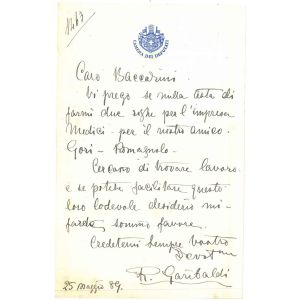 1487
CAMERA DEI DEPUTATI
Caro Baccarini
Vi prego se nulla osta di
farmi due righe per l'impresa
Medici - per il nostro amico
Gori - Romagnolo -
Cercano di trovare lavoro
e se potete facilitare questo
loro lodevole desiderio mi
farete sommo favore.
Credetemi sempre vostro
Devotmo
R. Garibaldi
25 Maggio 89.